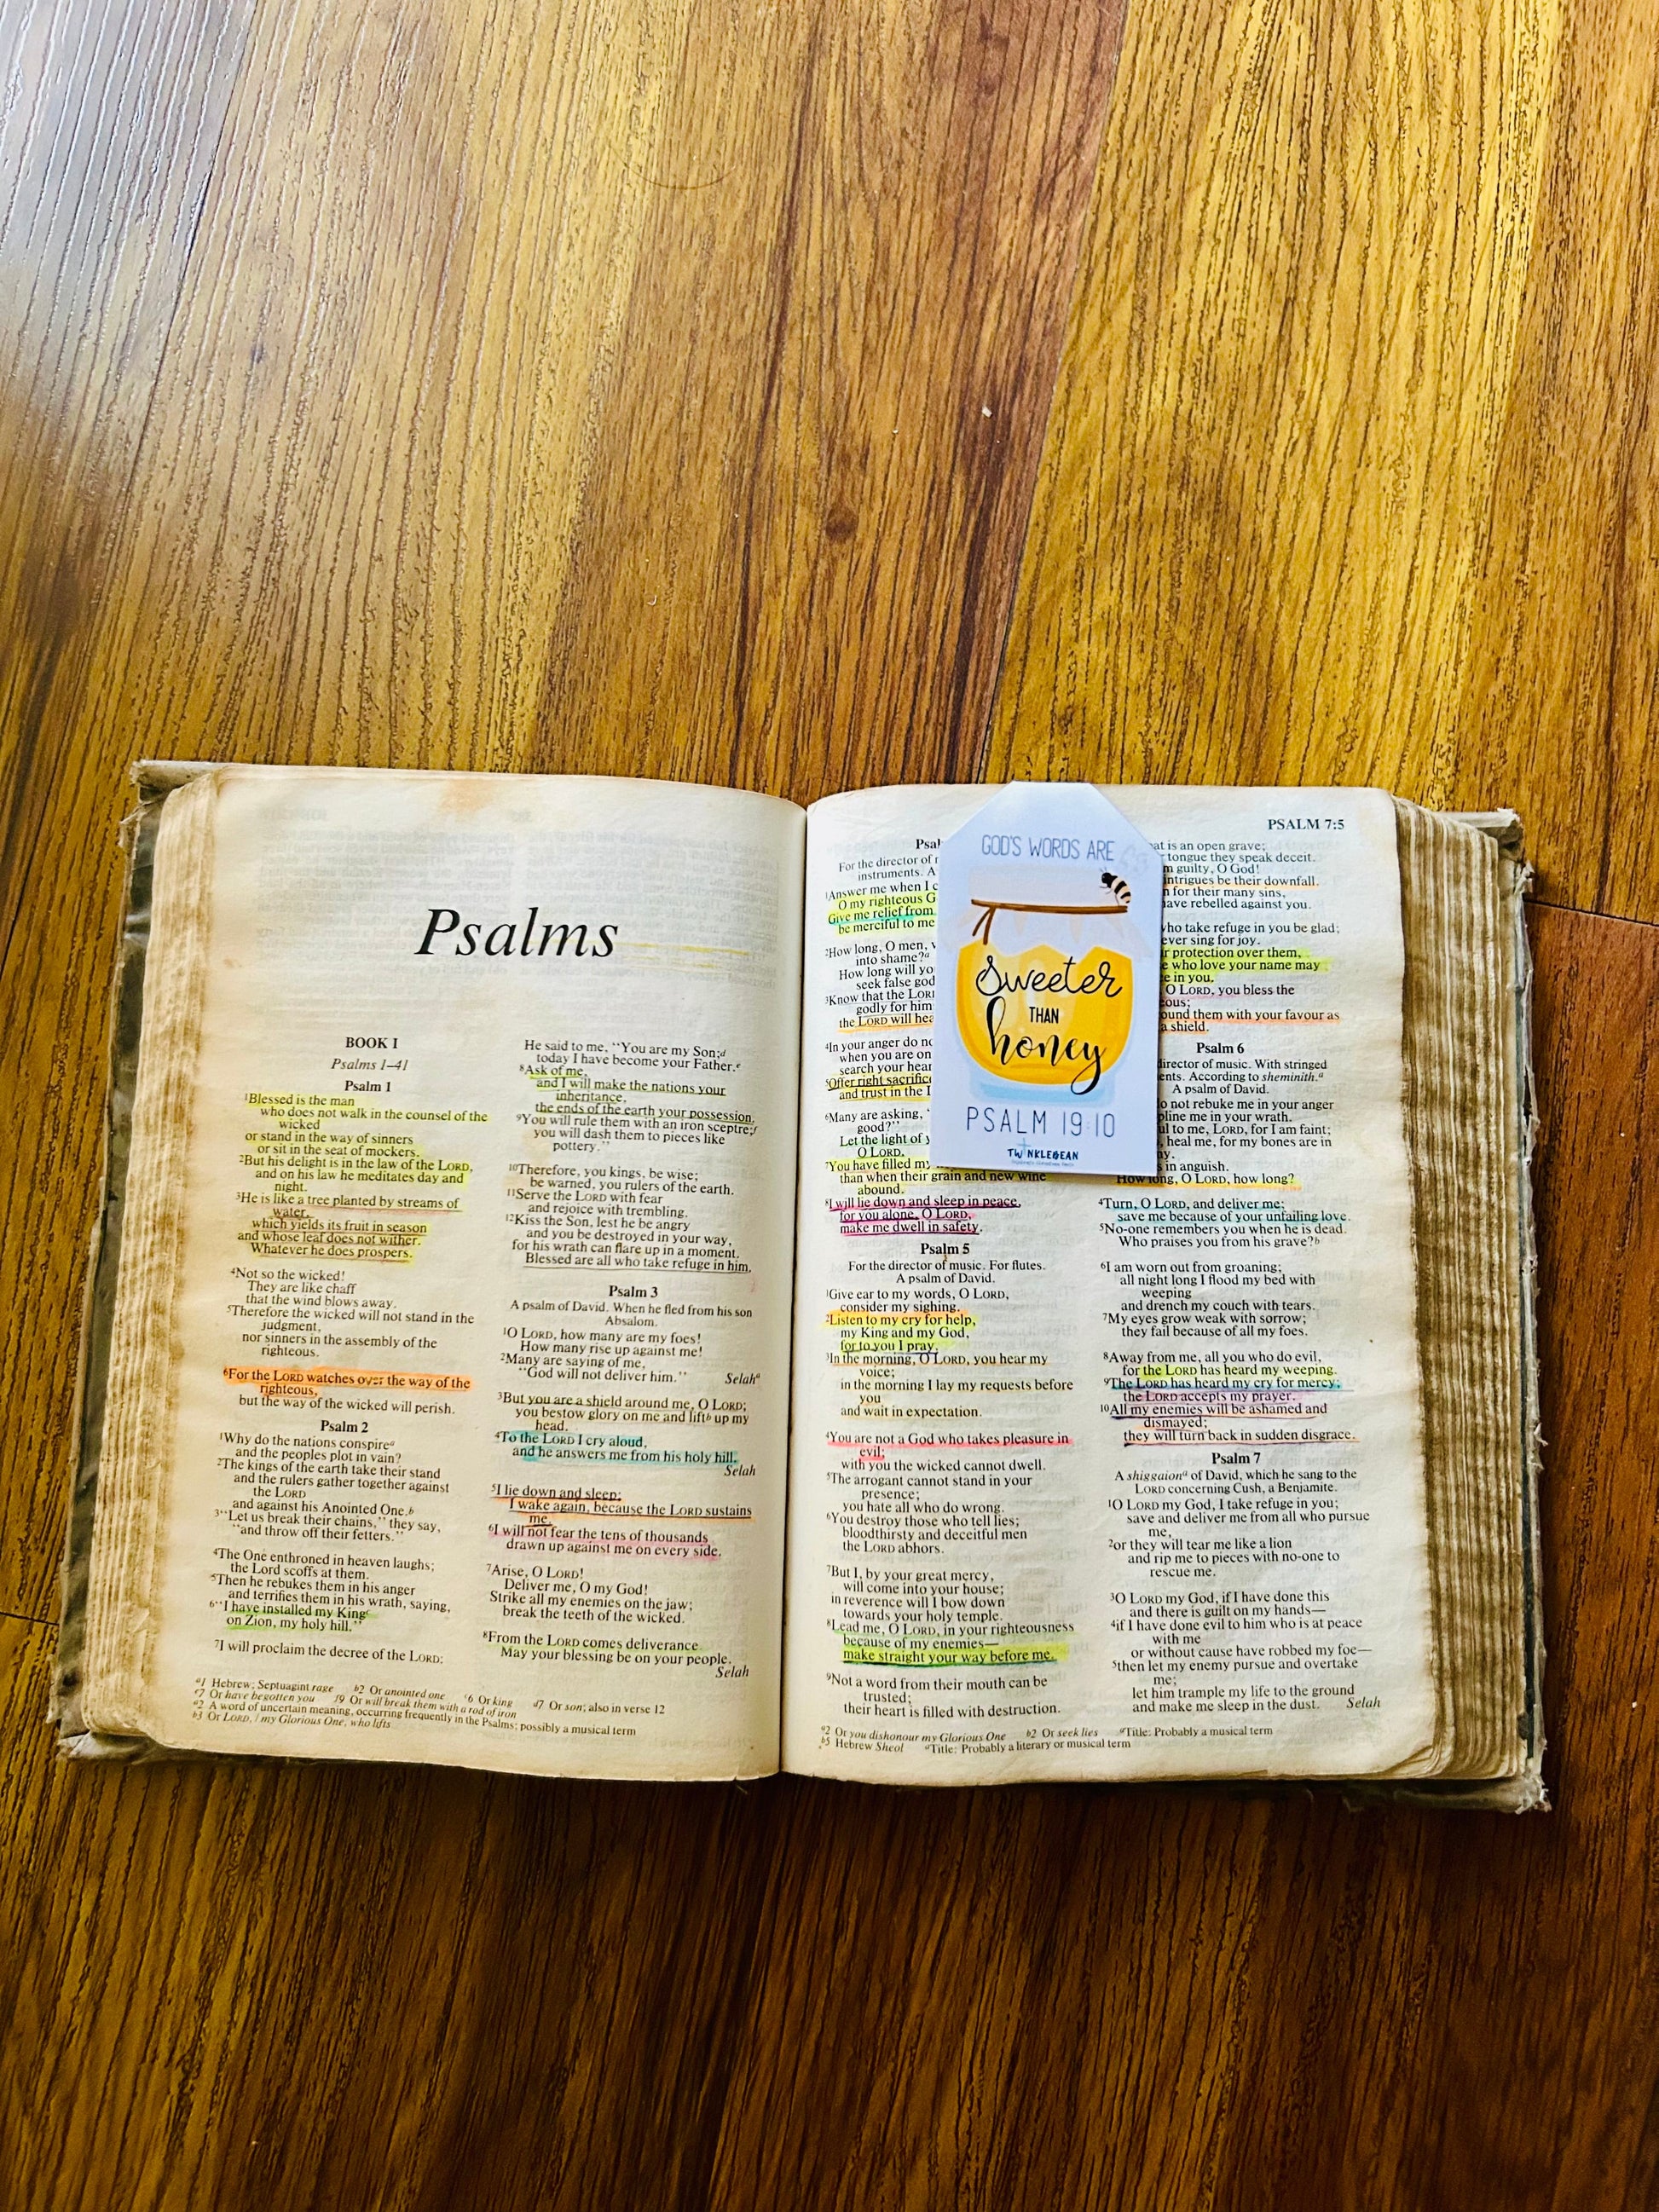 Psalms
BOOK I
Psalms 1–41
Psalm 1
1Blessed is the man
who does not walk in the counsel of the
wicked
or stand in the way of sinners
or sit in the seat of mockers.
2But his delight is in the law of the LORD,
and on his law he meditates day and
night.
3He is like a tree planted by streams of
water,
which yields its fruit in season
and whose leaf does not wither.
Whatever he does prospers.
4Not so the wicked!
They are like chaff
that the wind blows away.
5Therefore the wicked will not stand in the
judgment,
nor sinners in the assembly of the
righteous.
6For the LORD watches over the way of the
righteous,
but the way of the wicked will perish.
Psalm 2
1Why do the nations conspirea
and the peoples plot in vain?
2The kings of the earth take their stand
and the rulers gather together against
the LORD
and against his Anointed One.b
3“Let us break their chains,” they say,
“and throw off their fetters.”
4The One enthroned in heaven laughs;
the Lord scoffs at them.
5Then he rebukes them in his anger
and terrifies them in his wrath, saying,
6“I have installed my Kingc
on Zion, my holy hill.”
7I will proclaim the decree of the LORD:
He said to me, “You are my Son;d
today I have become your Father.e
8Ask of me,
and I will make the nations your
inheritance,
the ends of the earth your possession.
9You will rule them with an iron sceptre;f
you will dash them to pieces like
pottery.”
10Therefore, you kings, be wise;
be warned, you rulers of the earth.
11Serve the LORD with fear
and rejoice with trembling.
12Kiss the Son, lest he be angry
and you be destroyed in your way,
for his wrath can flare up in a moment.
Blessed are all who take refuge in him.
Psalm 3
A psalm of David. When he fled from his son
Absalom.
1O LORD, how many are my foes!
How many rise up against me!
2Many are saying of me,
“God will not deliver him.” Selaha
3But you are a shield around me, O LORD;
you bestow glory on me and liftb up my
head.
4To the LORD I cry aloud,
and he answers me from his holy hill.
Selah
5I lie down and sleep;
I wake again, because the LORD sustains
me.
6I will not fear the tens of thousands
drawn up against me on every side.
7Arise, O LORD!
Deliver me, O my God!
Strike all my enemies on the jaw;
break the teeth of the wicked.
8From the LORD comes deliverance.
May your blessing be on your people.
Selah
a1 Hebrew; Septuagint rage b2 Or anointed one c6 Or king d7 Or son; also in verse 12
e7 Or have begotten you f9 Or will break them with a rod of iron
a2 A word of uncertain meaning, occurring frequently in the Psalms; possibly a musical term
b3 Or LORD, / my Glorious One, who lifts
PSALM 7:5
For the director of
instruments. A
1Answer me when I
O my righteous
Give me relief from
be merciful to me
2How long, O men,
into shame?a
How long will
seek false
3Know that the
godly for him
the LORD will
4In your anger do
when you are on
search your
5Offer right
and trust in the
6Many are asking,
good?”
Let the light of
O LORD.
7You have filled my
than when their grain and new wine
abound.
8I will lie down and sleep in peace,
for you alone, O LORD,
make me dwell in safety.
Psalm 5
For the director of music. For flutes.
A psalm of David.
1Give ear to my words, O LORD,
consider my sighing.
2Listen to my cry for help,
my King and my God,
for to you I pray.
3In the morning, O LORD, you hear my
voice;
in the morning I lay my requests before
you
and wait in expectation.
4You are not a God who takes pleasure in
evil;
with you the wicked cannot dwell.
5The arrogant cannot stand in your
presence;
you hate all who do wrong.
6You destroy those who tell lies;
bloodthirsty and deceitful men
the LORD abhors.
7But I, by your great mercy,
will come into your house;
in reverence will I bow down
towards your holy temple.
8Lead me, O LORD, in your righteousness
because of my enemies—
make straight your way before me.
9Not a word from their mouth can be
trusted;
their heart is filled with destruction.
GOD'S WORDS ARE
sweeter
THAN
honey
PSALM 19:10
TWINKLEBEAN
is an open grave;
tongue they speak deceit.
guilty, O God!
intrigues be their downfall.
for their many sins,
have rebelled against you.
who take refuge in you be glad;
ever sing for joy.
protection over them,
who love your name may
in you.
O LORD, you bless the
them with your favour as
a shield.
Psalm 6
director of music. With stringed
According to sheminith.a
A psalm of David.
not rebuke me in your anger
me in your wrath.
to me, LORD, for I am faint;
heal me, for my bones are in
in anguish.
How long, O LORD, how long?
4Turn, O LORD, and deliver me;
save me because of your unfailing love.
5No-one remembers you when he is dead.
Who praises you from his grave?b
6I am worn out from groaning;
all night long I flood my bed with
weeping
and drench my couch with tears.
7My eyes grow weak with sorrow;
they fail because of all my foes.
8Away from me, all you who do evil,
for the LORD has heard my weeping.
9The LORD has heard my cry for mercy;
the LORD accepts my prayer.
10All my enemies will be ashamed and
dismayed;
they will turn back in sudden disgrace.
Psalm 7
A shiggaiona of David, which he sang to the
LORD concerning Cush, a Benjamite.
1O LORD my God, I take refuge in you;
save and deliver me from all who pursue
me,
2or they will tear me like a lion
and rip me to pieces with no-one to
rescue me.
3O LORD my God, if I have done this
and there is guilt on my hands—
4if I have done evil to him who is at peace
with me
or without cause have robbed my foe—
5then let my enemy pursue and overtake
me;
let him trample my life to the ground
and make me sleep in the dust. Selah
a2 Or you dishonour my Glorious One b2 Or seek lies aTitle: Probably a musical term
b5 Hebrew Sheol aTitle: Probably a literary or musical term